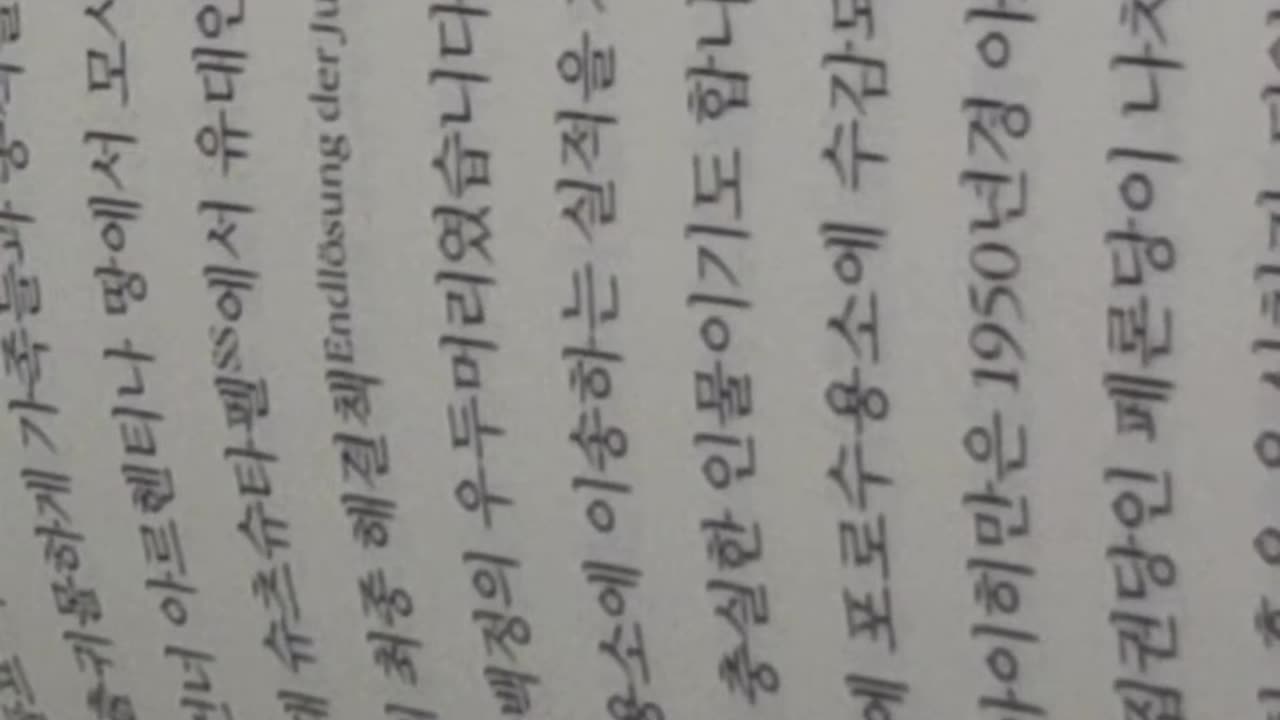 가족들과
하게 가족들과
아르헨티나 땅에서
슈츠슈타펠SS에서 유대인
최종 해결책Endlösung der Ju
백정의 우두머리였습니다
용소에 이송하는 실적을
충실한 인물이기도 합니
에 포로수용소에 수감되
아이히만은 1950년경 아
집권당인 페론당이 나치